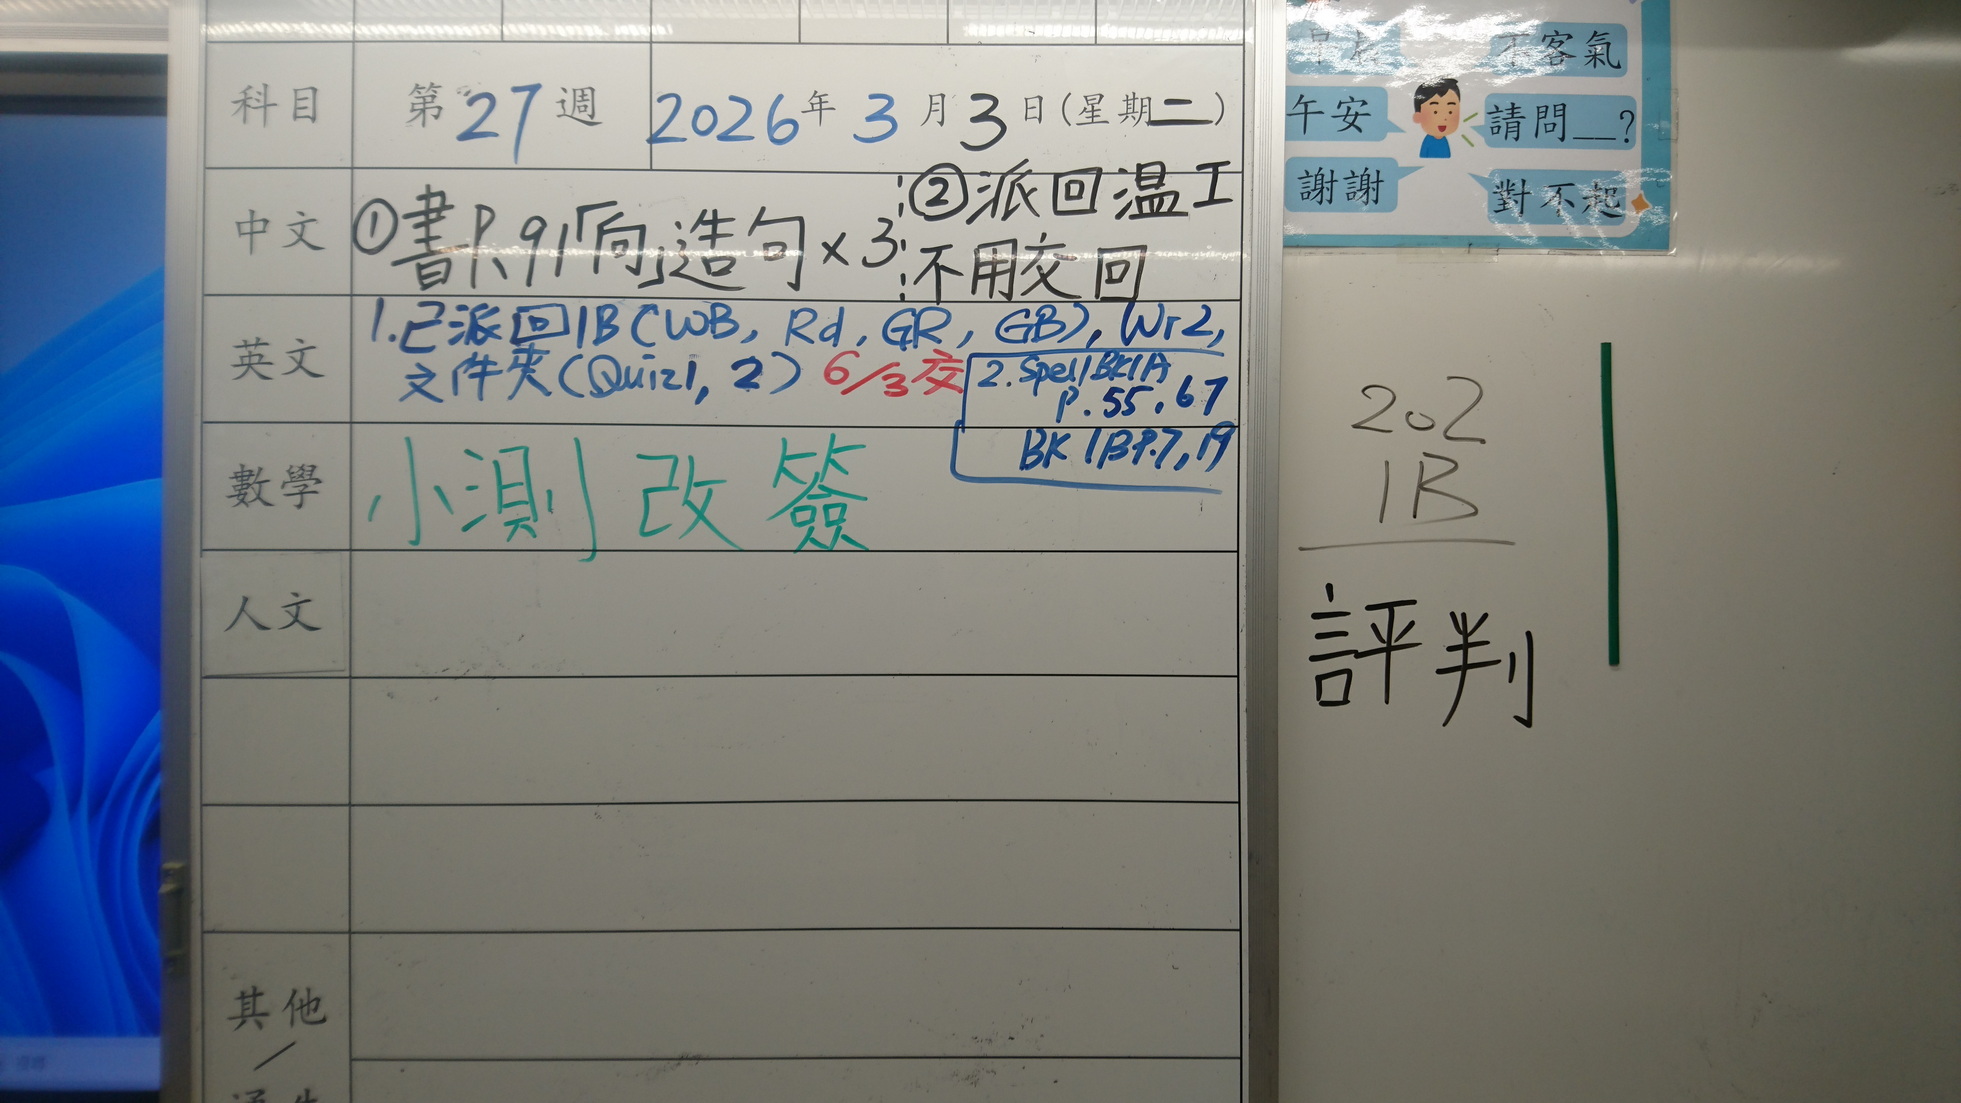 科目 第27週 2026年3月3日(星期二)
中文 ①書P.91「向」造句×3 ②派回温工
不用交回
英文 1.已派回1B(WB, Rd, GR, GB), Wr2,
文件夾(Quiz1, 2) 6/3交 2. Spell BK1A
P.55, 67
BK 1B P.7, 19
數學 小測改簽
人文
其他
/
不客氣
午安 請問__?
謝謝 對不起
202
1B
評判